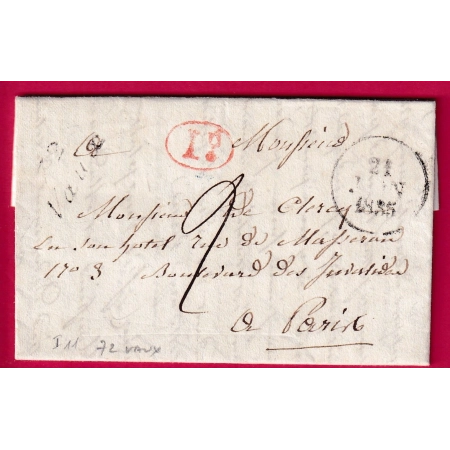 à Monsieur
1D
72
Vaux
21
1835
Monsieur de Clercq
En son hotel rue de Masseran
N° 3 Boulevard des Invalides
2
à Paris
I 11 72 VAUX